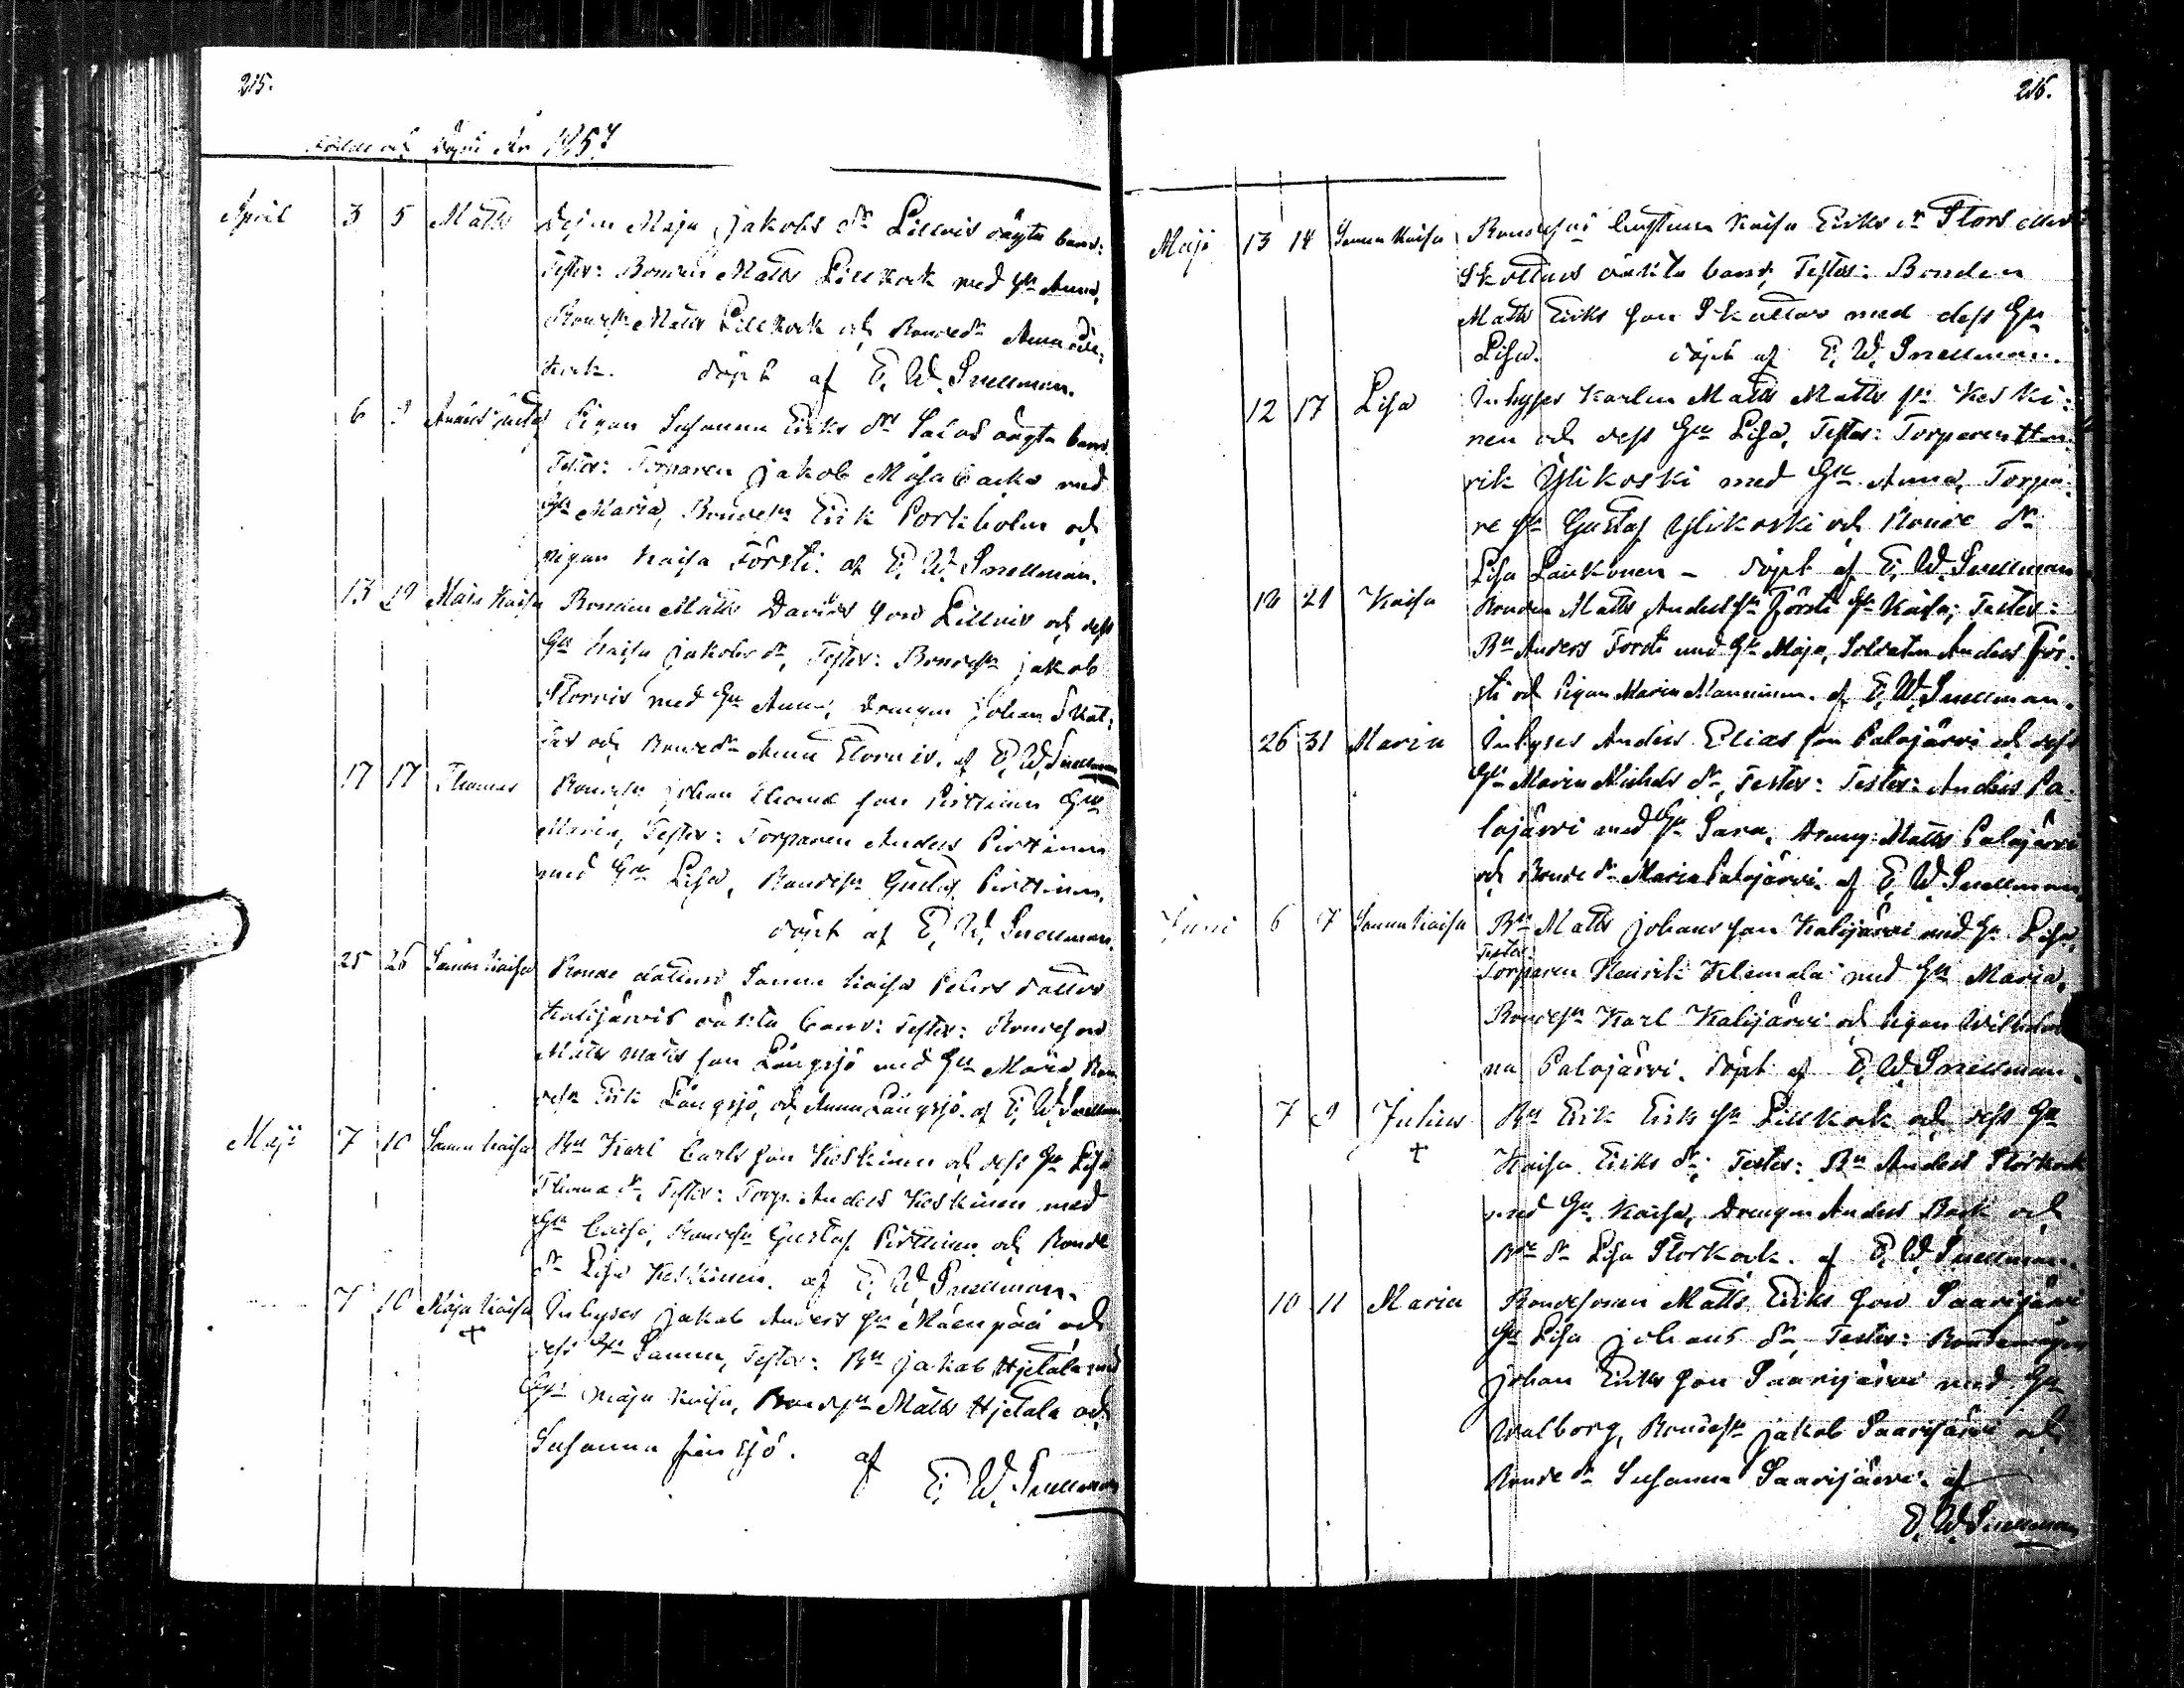 215.
Födde och Döpte År 1857
April 3 5 Matts Pigan Maja Jakobs dr Lillvis oägta barn:
Testes: Bonden Matts Lillkock med Hu Anna,
Bondesn Matts Lillkock och Bondedr Anna
kock. döpt af E. W. Snellman.
6 9 Anders Gustaf Pigan Susanna Eriks dr Salos oägta barn
Testes: Torparen Jakob Mosabacka med
Hu Maria, Bondesn Erik Porkholm och
pigan Kaisa Försti. af E. W. Snellman.
13 19 Maja Kaisa Bonden Matts Davids son Lillvis och dess
Hu Kaisa Jakobs dr, Testes: Bondesn Jakob
Storvis med Hu Anna, Drengen Johan Skat-
tar och Bondedr Anna Storvis. af E. W. Snellman
17 17 Thomas Bondesn Johan Thomæ son Pirttinen Hu
Maria, Testes: Torparen Anders Pirttinen
med Hu Lisa, Bondesn Gustaf Pirttinen,
döpt af E. W. Snellman.
25 26 Sanna Kaisa Bonde dottren Sanna Kaisa Peters dotter
Kalijärvis oäkta barn: Testes: Bondesson
Matts Matts son Långsjö med Hu Maria Bon
desn Erik Långsjö, och Anna Långsjö. af E. W. Snellman
Maji 7 10 Sanna Kaisa Bn Karl Carls son Keskinen och dess Hu Lisa
Thomæ dr, Testes: Torp. Anders Keskinen med
Hu Caisa, Bondesn Gustaf Pirttinen och Bonde
dr Lisa Keskinen. af E. W. Snellman.
7 10 Maja Kaisa + Inhyses Jakob Anders sn Mäenpää och
dess Hu Sanna, Testes: Bn Jakob Hjetala med
Hu Maja Kaisa, Bondesn Matts Hjetala och
Susanna sjö. af
E. W. Snellman
216.
Maji 13 14 Sanna Kaisa Kaisa Eriks dr Stors eller
Skattars oäkta barn, Testes: Bonden
Matts Eriks son Skattar med dess Hu
Lisa. döpt af E. W. Snellman.
12 17 Lisa Inhyses Karlen Matts Matts sn Keski-
nen och dess Hu Lisa, Testes: Torparen Hen-
rik Ylikoski med Hu Anna, Torpa-
re sn Gustaf Ylikoski och Bonde dr
Lisa Laukonen – döpt af E. W. Snellman
18 21 Kaisa Bonden Matts Anders sn Försti Hu Kaisa; Testes:
Bn Anders Försti med Hu Maja, Soldaten Anders För-
sti och Pigan Maria Manninen. af E. W. Snellman.
26 31 Maria Inhyses Anders Elias son Palojärvi och dess
Hu Maria Michels dr, Testes: Testes: Anders Pa-
lojärvi med Hu Sara, Dreng: Matts Palojärvi
och Bonde dr Maria Palojärvi. af E. W. Snellman
Juni 6 7 Sanna Kaisa Bn Matts Johans son Kalijärvi med Hu Lisa,
Testes:
Torparen Henrik Klemola med Hu Maria,
Bondesn Karl Kalijärvi och Pigan Wilhelmi
na Palojärvi. döpt af E. W. Snellman.
7 9 Julius + Bn Erik Eriks sn Lillkock och dess Hu
Kaisa Eriks dr; Testes: Bn Anders Storkock
med Hu Kaisa, Drengen Anders Back och
Bde dr Lisa Storkock. af E. W. Snellman.
10 11 Maria Bondesonen Matts Eriks son Saarijärvi
Hu Lisa Johans dr, Testes: Bondemågen
Johan Eriks son Saarijärvi med Hu
Walborg, Bondesn Jakob Saarijärvi och
Bonde dr Susanna Saarijärvi. af
E. W. Snellman